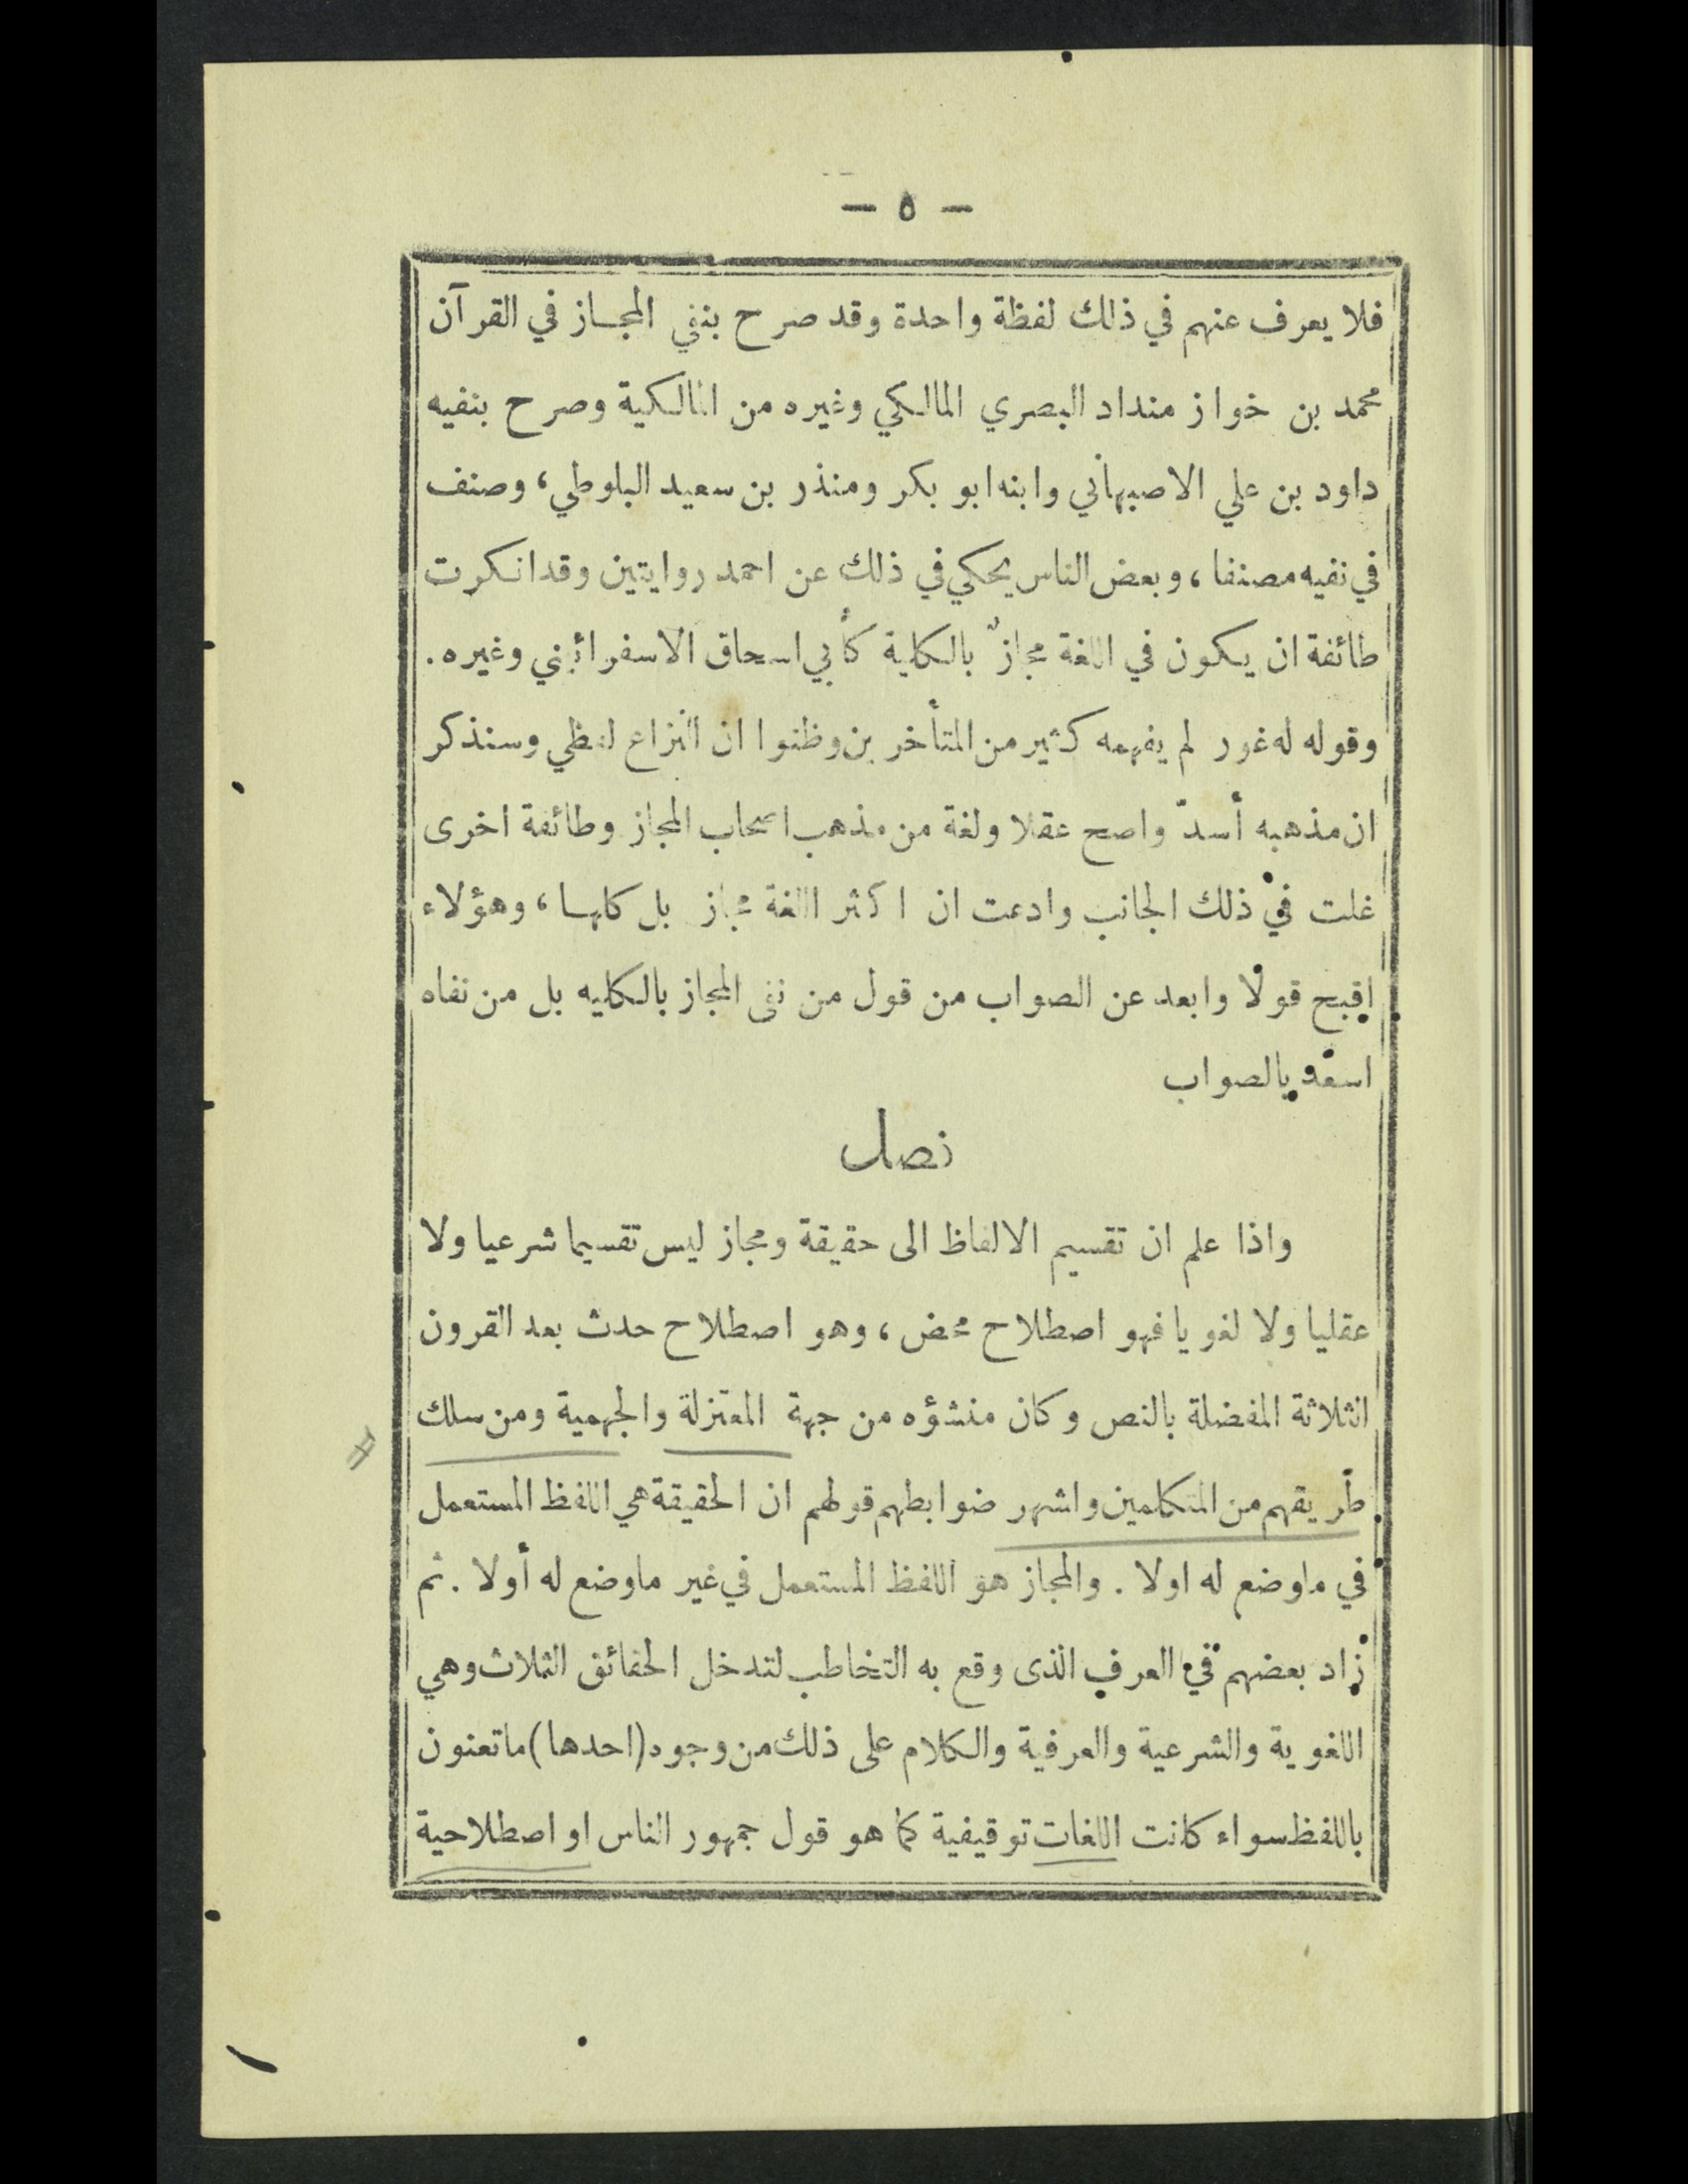 — ٥ —
فلا يعرف عنهم في ذلك لفظة واحدة وقد صرح بنفي المجاز في القرآن
محمد بن خواز منداد البصري المالكي وغيره من المالكية وصرح بنفيه
داود بن علي الاصبهاني وابنه ابو بكر ومنذر بن سعيد البلوطي، وصنف
في نفيه مصنفا، وبعض الناس يحكي في ذلك عن احمد روايتين وقد انكرت
طائفة ان يكون في اللغة مجازٌ بالكلية كأبي اسحاق الاسفرائيني وغيره.
وقوله له غور لم يفهمه كثير من المتأخرين وظنوا ان النزاع لفظي وسنذكر
ان مذهبه أسدّ واصح عقلا ولغة من مذهب اصحاب المجاز وطائفة اخرى
غلت في ذلك الجانب وادعت ان اكثر اللغة مجاز بل كلها، وهؤلاء
اقبح قولا وابعد عن الصواب من قول من نفى المجاز بالكليه بل من نفاه
اسعد بالصواب
فصل
واذا علم ان تقسيم الالفاظ الى حقيقة ومجاز ليس تقسيما شرعيا ولا
عقليا ولا لغويا فهو اصطلاح محض، وهو اصطلاح حدث بعد القرون
الثلاثة المفضلة بالنص وكان منشؤه من جهة المعتزلة والجهمية ومن سلك
طريقهم من المتكلمين واشهر ضوابطهم قولهم ان الحقيقة هي اللفظ المستعمل
في ماوضع له اولا. والمجاز هو اللفظ المستعمل في غير ماوضع له أولا. ثم
زاد بعضهم في العرف الذى وقع به التخاطب لتدخل الحقائق الثلاث وهي
اللغوية والشرعية والعرفية والكلام على ذلك من وجوه (احدها) ماتعنون
باللفظ سواء كانت اللغات توقيفية كما هو قول جمهور الناس او اصطلاحية